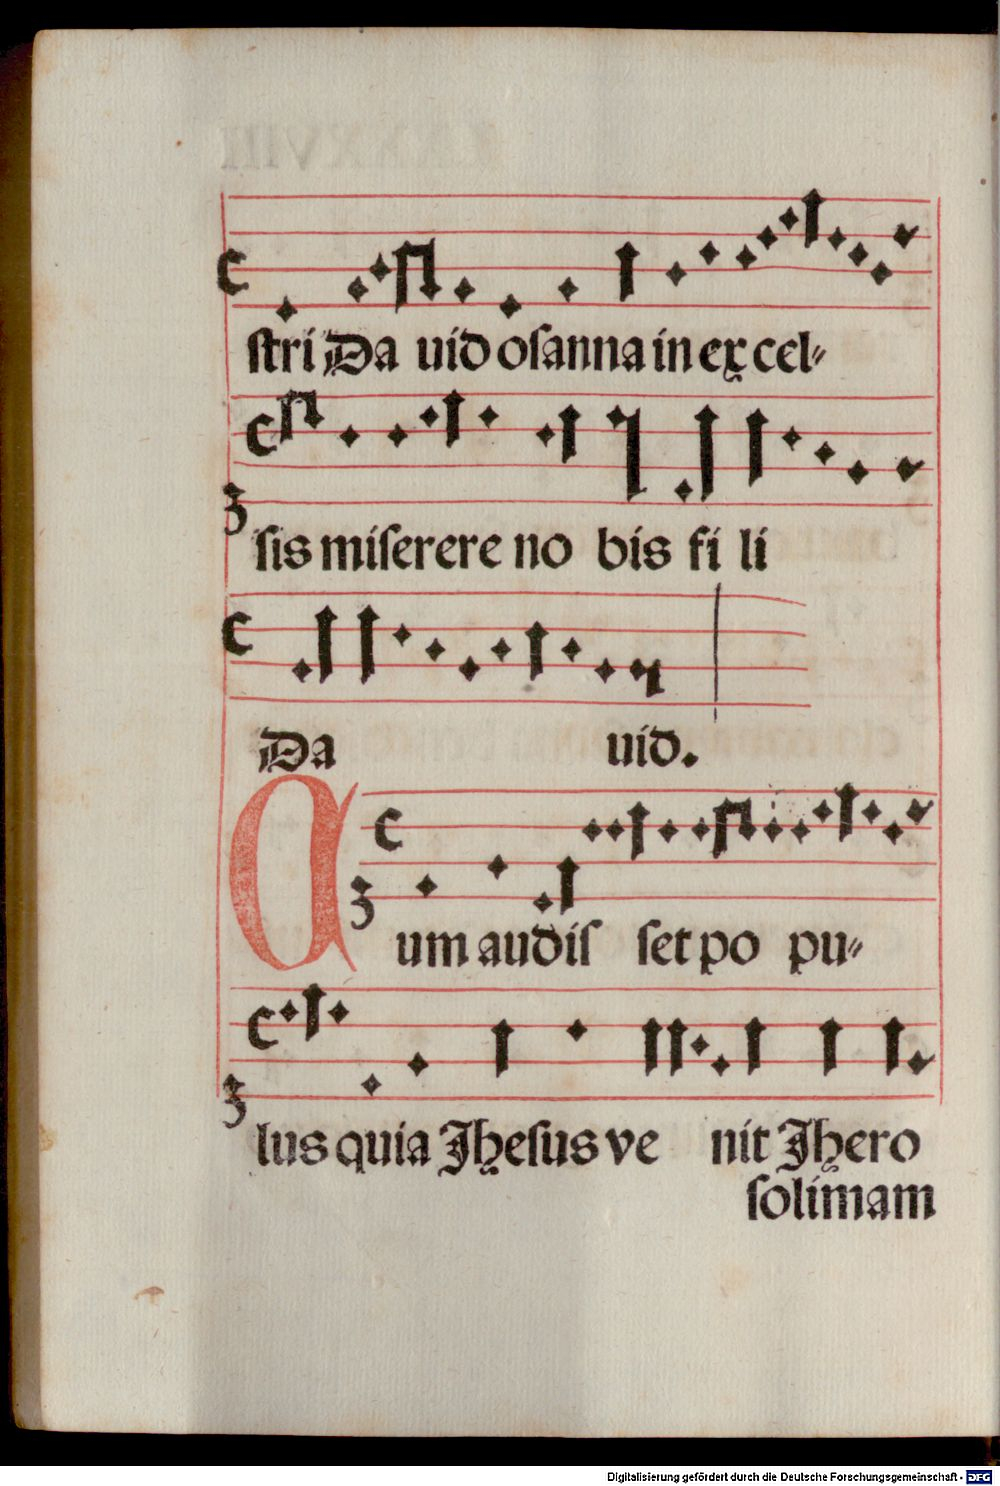 ſtri Da uid oſanna in ex cel⸗
ſis miſerere no bis fi li
Da uid.
Cum audiſ ſet po pu⸗
lus quia Jheſus ve nit Jhero
ſolimam
Digitalisierung gefördert durch die Deutsche Forschungsgemeinschaft - DFG